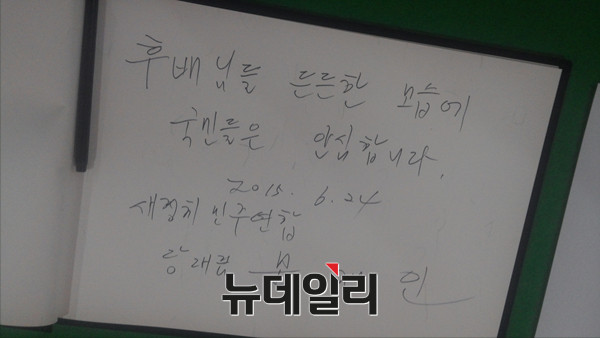 후배님들 든든한 모습에
국민들은 안심합니다.
2015. 6.24
새정치민주연합
당대표 인
뉴데일리